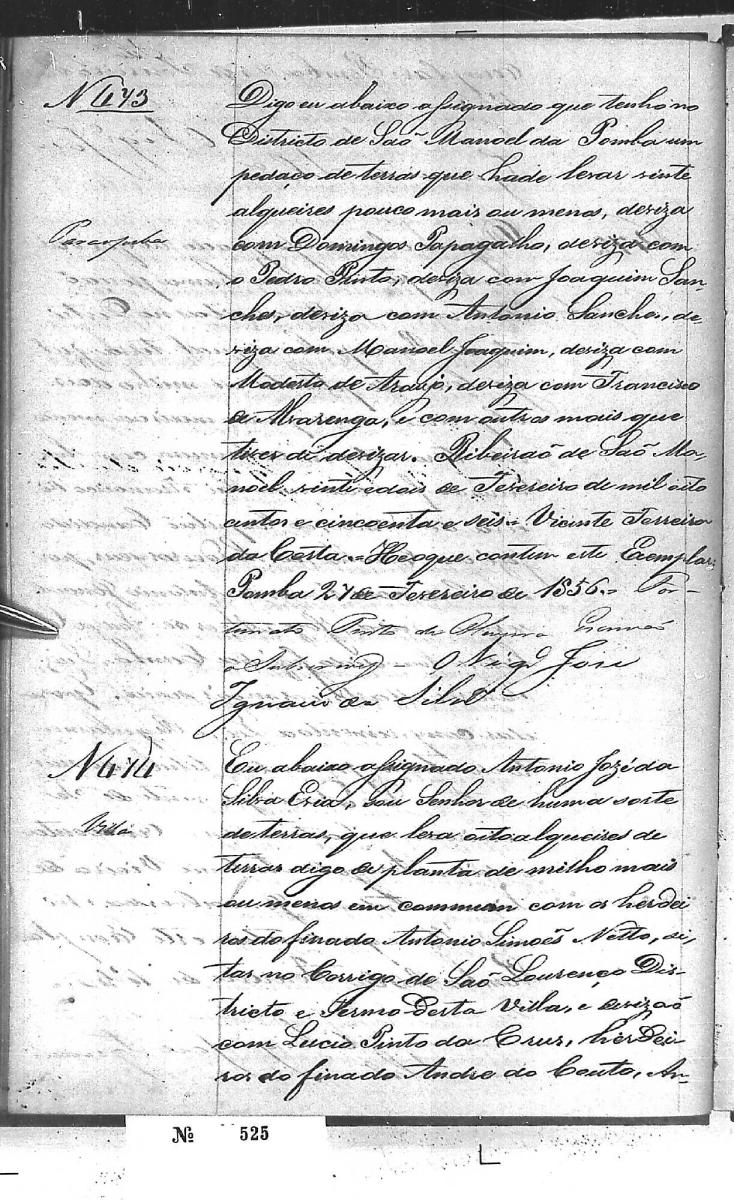 N 473
Digo eu abaixo assignado que tenho no
Districto de Saõ Manoel da Pomba um
pedaço de terras que hade levar vinte
alqueires pouco mais ou menos, deviza
com Domingos Papagalho, deviza com
o Pedro Pinto, deviza com Joaquim San-
ches, deviza com Antonio Sanches, de-
viza com Manoel Joaquim, deviza com
Modesto de Araujo, deviza com Francisco
de Alvarenga, e com outros mais que
tiver de devizar. Ribeiraõ de Saõ Ma
noel vinte e dois de Fevereiro de mil oito
centos e cincoenta e seis = Vicente Ferreira
da Costa = He o que contem este Exemplar
Pomba 27 de Fevereiro de 1856 = For-
tunato Pinto de
o = O Vigº José
Ignacio da Silvª
N 474
Villa
Eu abaixo assignado Antonio Jozé da
Silva Eria, sou Senhor de huma sorte
de terras, que leva oito alqueires de
terras digo de planta de milho mais
ou menos em commum com os herdei
ros do finado Antonio Simoẽs Netto, si,
tas no Corrigo de Saõ Lourenço Dis-
tricto e Termo desta Villa, e devizaõ
com Lucio Pinto da Cruz, herdei
ros do finado Andre do Couto, An-
Nº 525